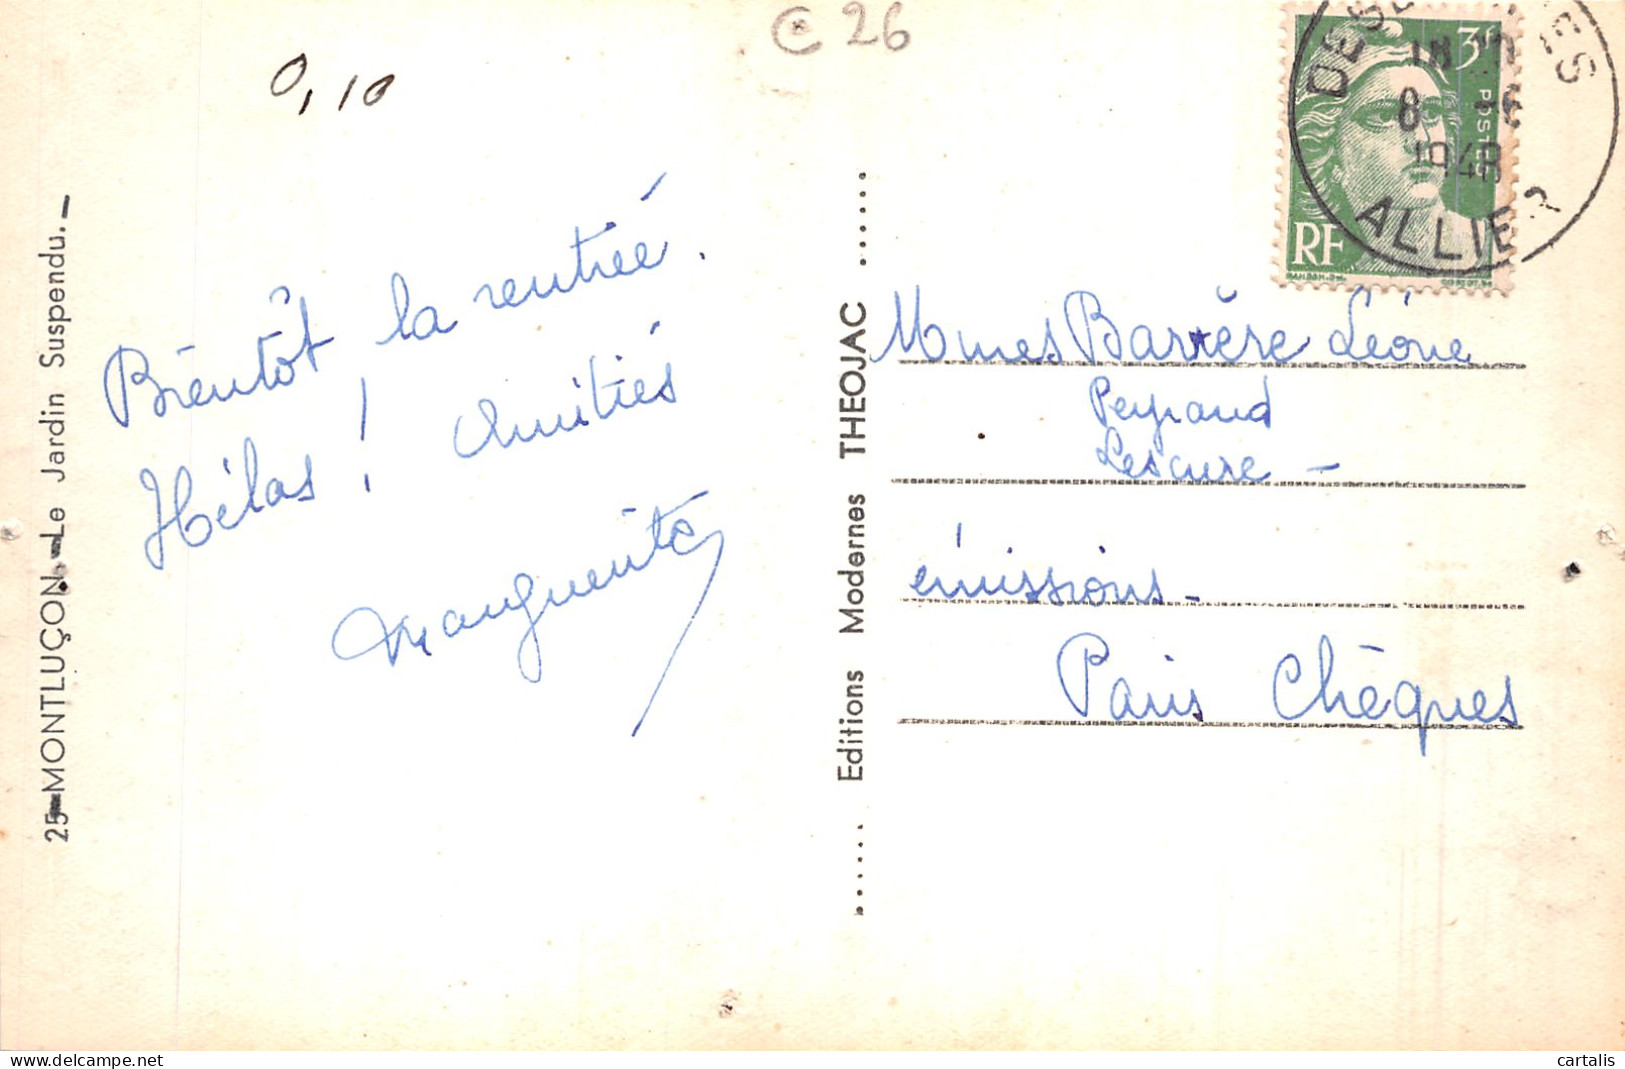 C 26
0,10
Bientôt la rentrée.
Hélas ! Amitiés
Marguerite
25 - MONTLUÇON. - Le Jardin Suspendu. -
...... Editions Modernes THEOJAC ......
3f
POSTES
RF
18
8 -6
1948
ALLIER
Mmes Barrère Léone
Peyraud
Lescure -
émissions -
Paris Chèques
cartalis